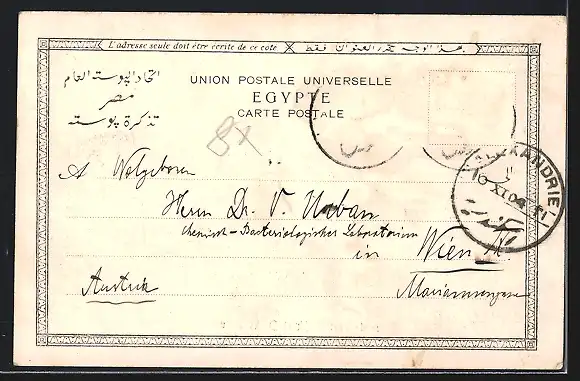 L'adresse seule doit être écrite de ce côté
هذا الوجه محرر العنوان فقط
اتحاد البوسته العام
مصر
تذكرة بوسته
UNION POSTALE UNIVERSELLE
EGYPTE
CARTE POSTALE
A Wolgeboren
Herrn Dr. V. Urban
Chemisch-Bacteriologisches Laboratorium
in Wien
Austria
Mariannengasse
ALEXANDRIE
10 XI 04